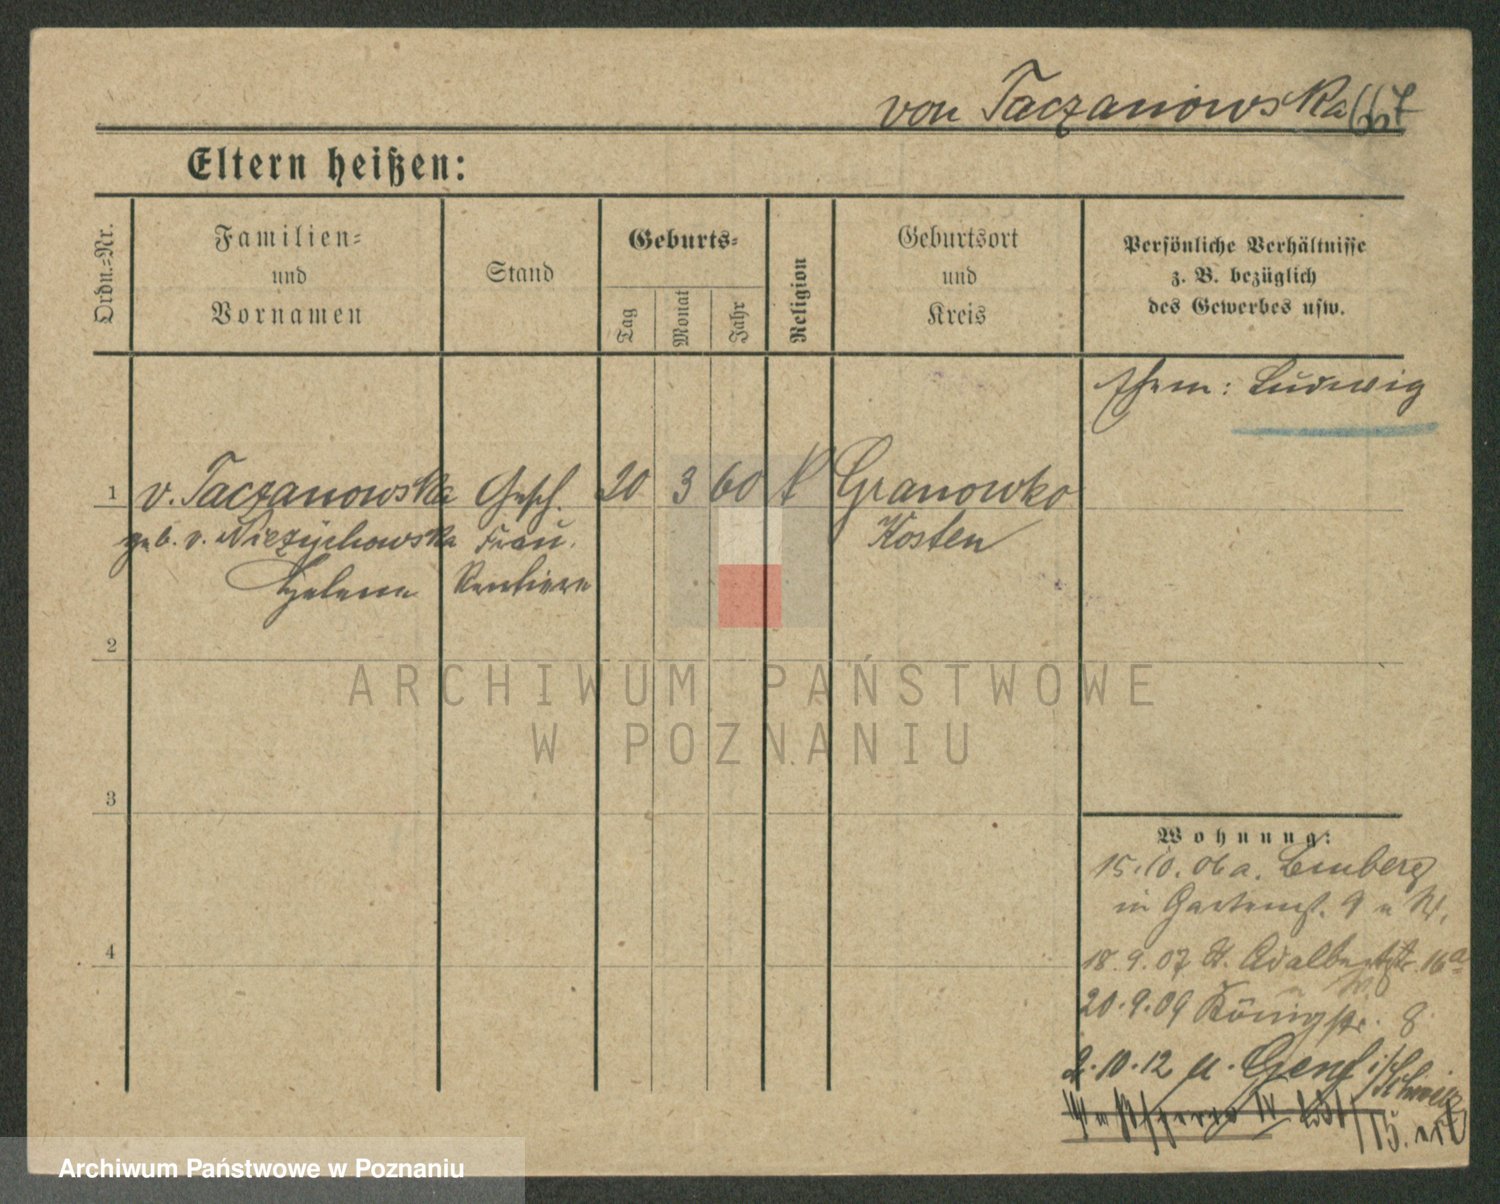 von Taczanowska 667
Eltern heißen:
Ordn.-Nr.
Familien-
und
Vornamen
Stand
Geburts-
Tag
Monat
Jahr
Religion
Geburtsort
und
Kreis
Persönliche Verhältnisse
z. B. bezüglich
des Gewerbes usw.
Ehem: Ludwig
1 v. Taczanowska Gesch. 20 3 60 k Granowko
geb. v. Niezychowska Frau. Kosten
Helene Rentiere
2
3
4
Wohnung:
15.10.06 a. Lemberg
in Gartenst. 9 n W.
18.9.07 St. Adalbertstr. 16a
20.9.09 Königstr. 8
2.10.12 u. Genf i/Schweiz
IV
ARCHIWUM PAŃSTWOWE
W POZNANIU
Archiwum Państwowe w Poznaniu